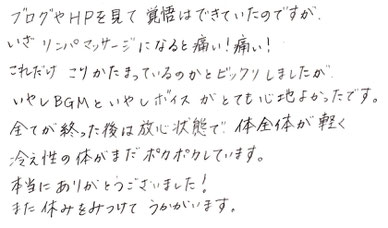 ブログやHPを見て覚悟はできていたのですが、
いざリンパマッサージになると痛い!痛い!
これだけこりかたまっているのかとビックリしましたが
いやしBGMといやしボイスがとても心地よかったです。
全てが終った後は放心状態で体全体が軽く
冷え性の体がまだポカポカしています。
本当にありがとうございました!
また休みをみつけてうかがいます。